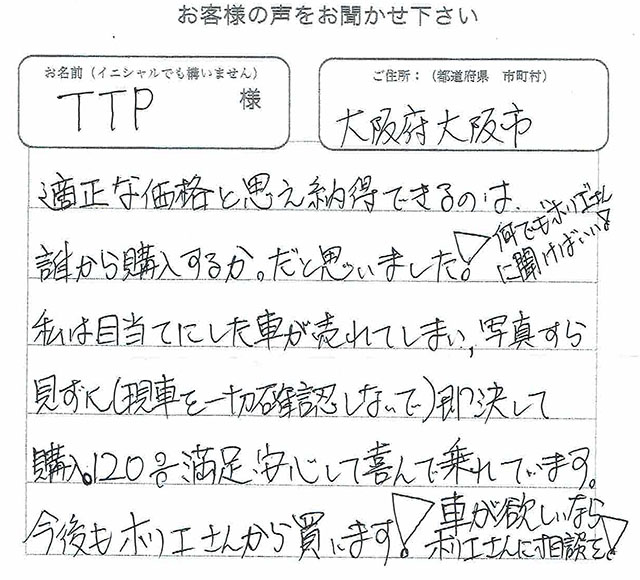 お客様の声をお聞かせ下さい
お名前（イニシャルでも構いません）
TTP 様
ご住所：（都道府県 市町村）
大阪府大阪市
適正な価格と思え納得できるのは、
誰から購入するか。だと思いました!
何でもホリエさん
に聞けばいい!
私は目当てにした車が売れてしまい,写真すら
見ずに(現車を一切確認しないで)即決して
購入。120%満足安心して喜んで乗れています。
今後もホリエさんから買います!
車が欲しいなら
ホリエさんに相談を!